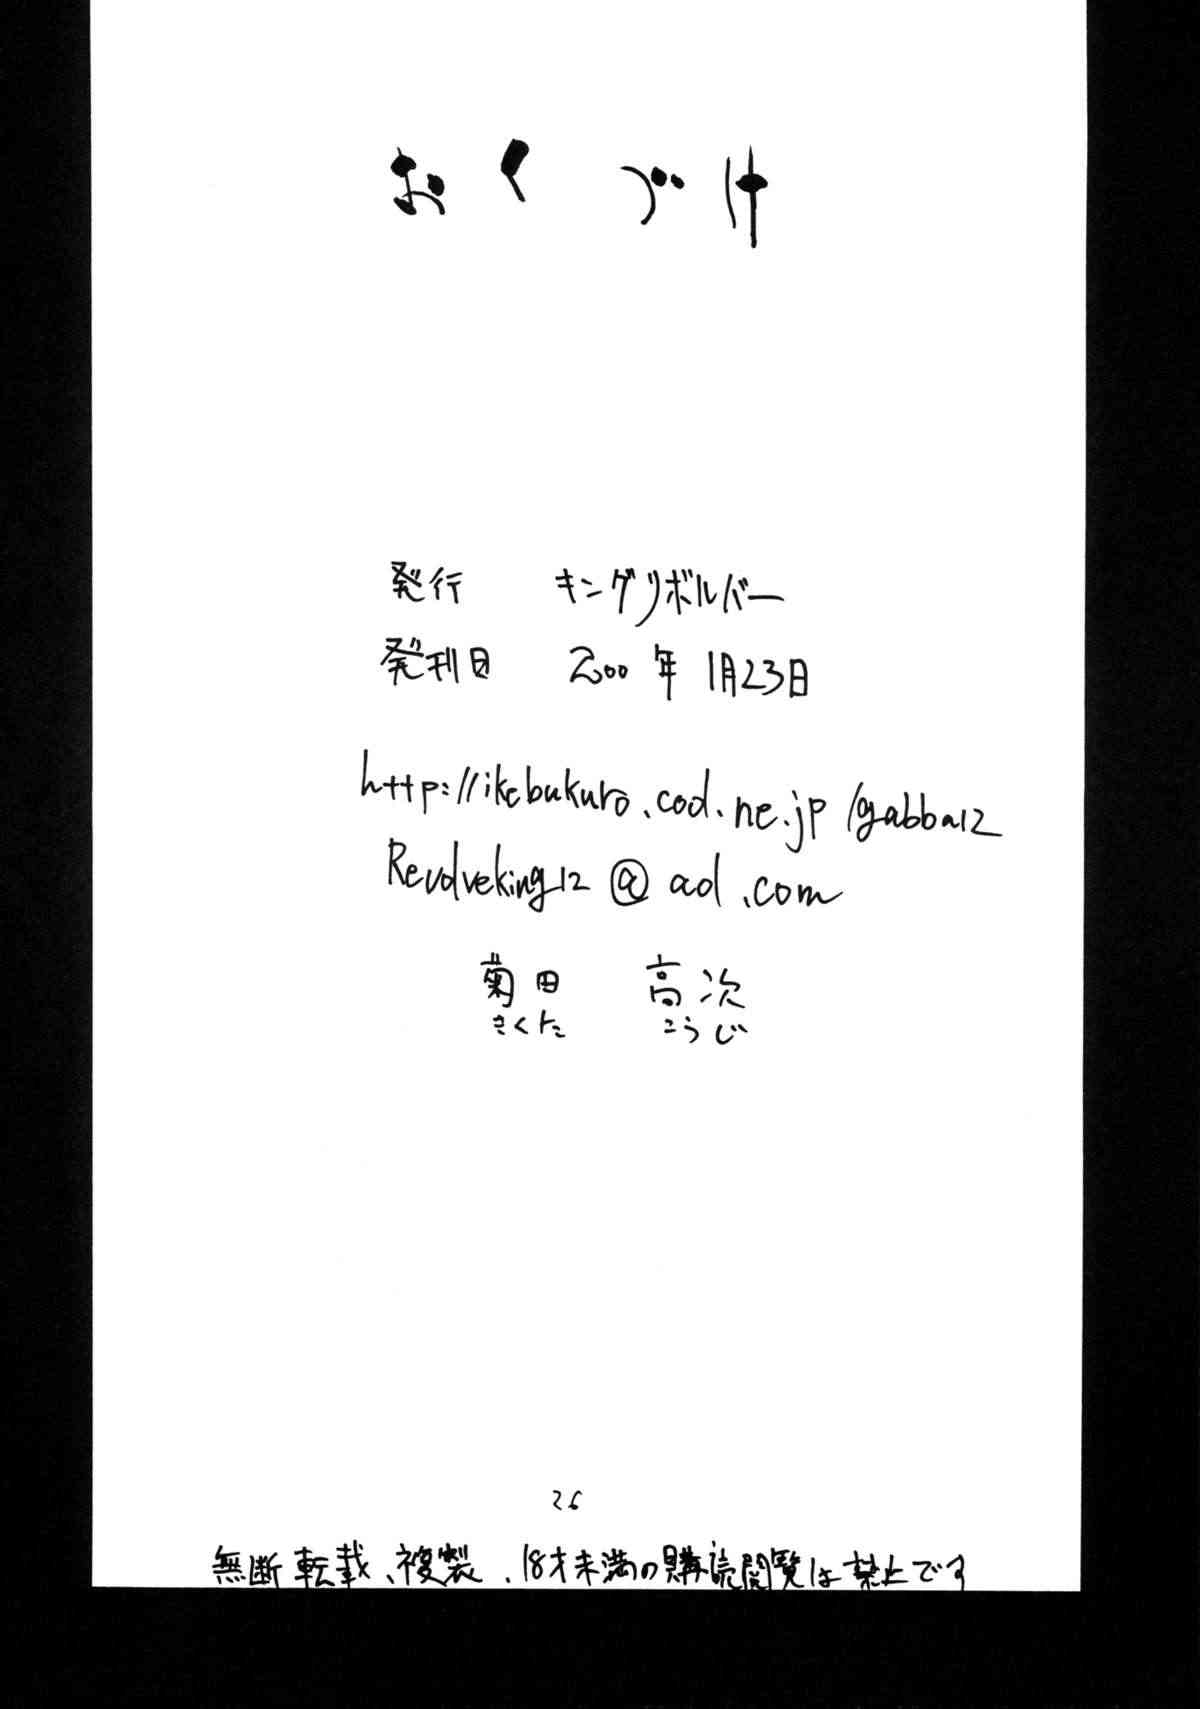 おくづけ
発行 キングリボルバー
発刊日 2000年1月23日
http://ikebukuro.cod.ne.jp/gabba12
Revolveking12@aol.com
菊田 高次
きくた こうじ
26
無断転載、複製、18才未満の購読閲覧は禁止です